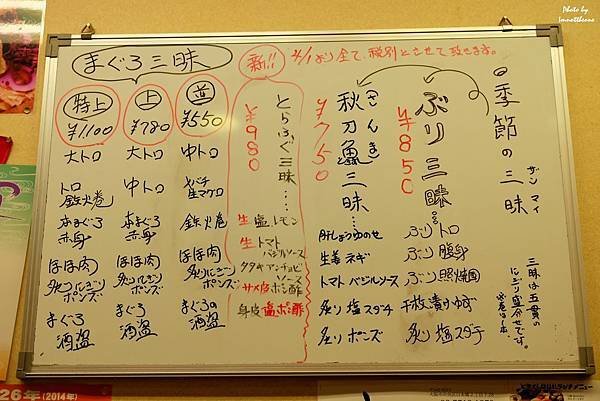 まぐろ三昧
特上
¥1100
大トロ
トロ
鉄火巻
本まぐろ
赤身
ほほ肉
炙りにぎり
ポンズ
まぐろ
酒盗
上
¥780
大トロ
中トロ
本まぐろ
赤身
ほほ肉
炙りにぎり
ポンズ
まぐろ
酒盗
並
¥550
中トロ
バチ
生マグロ
鉄火巻
ほほ肉
炙りにぎり
ポンズ
まぐろの
酒盗
新!!
4/1より全て、税別とさせて致きます。
季節の三昧
ザンマイ
ぶり三昧
¥850
ぶり トロ
ぶり 腹身
ぶり 照焼風
千枚漬かゆず
炙り 塩スダチ
秋刀魚三昧
さんま
¥750
肝しょうゆのせ
生姜ネギ
トマトバジルソース
炙り 塩スダチ
炙り ポンズ
とらふぐ三昧
¥980
生 塩レモン
生 トマト
バジルソース
タタキアンチョビ
ソース
サメ皮ポン酢
身皮塩ポン酢
三昧は五貫の
にぎり盛合せです。
26年(2014年)
Photo by